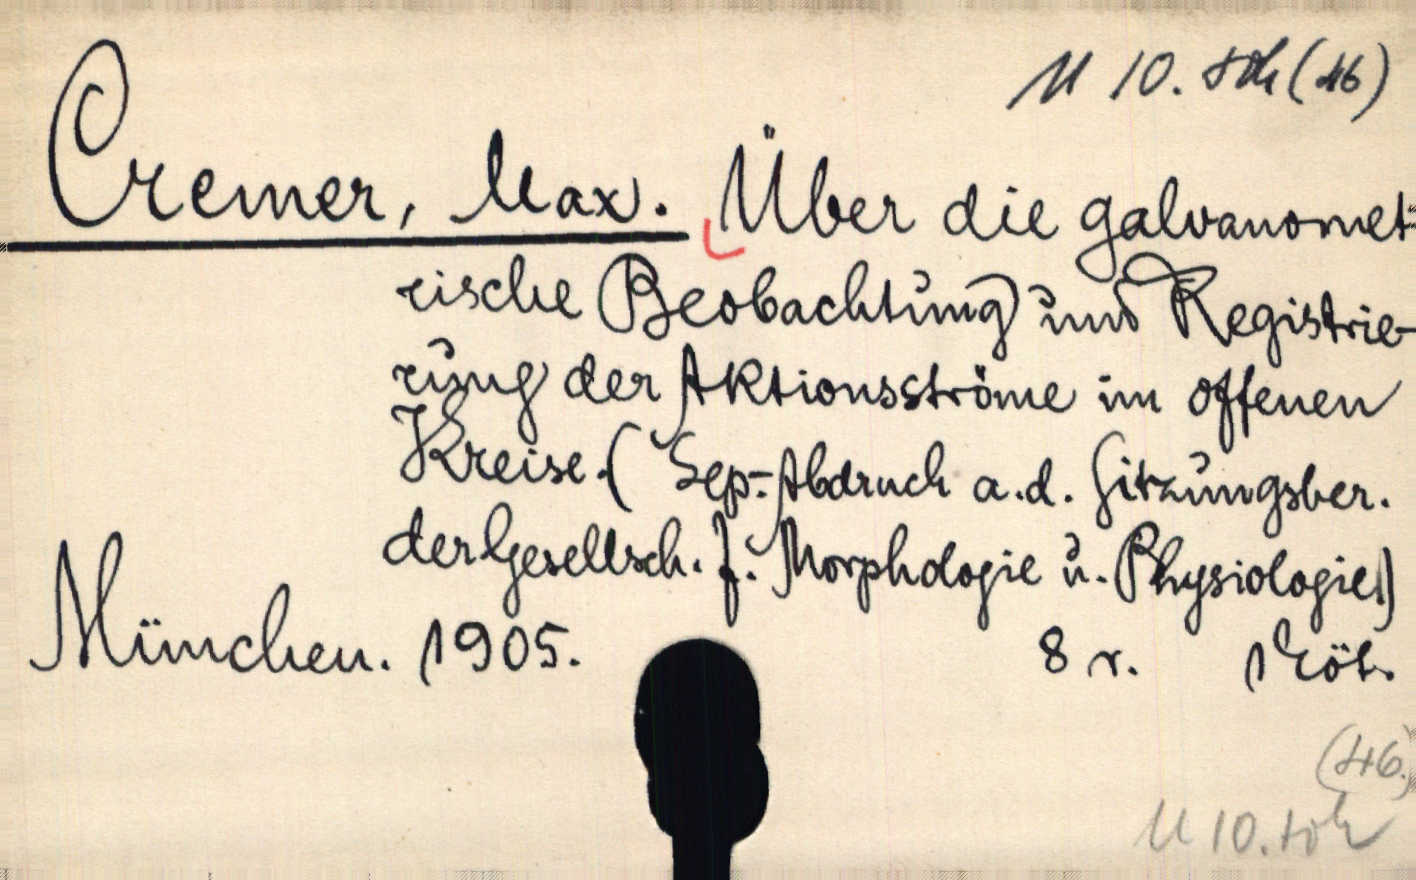 M 10. töh (46)
Cremer, Max. Über die galvanomet-
rische Beobachtung und Registrie-
rung der Aktionsströme im offenen
Kreise. (Sep.-Abdruck a. d. Sitzungsber.
der Gesellsch. f. Morphologie u. Physiologie.)
München. 1905. 8 r. 1 köt.
(46.)
M 10. töh